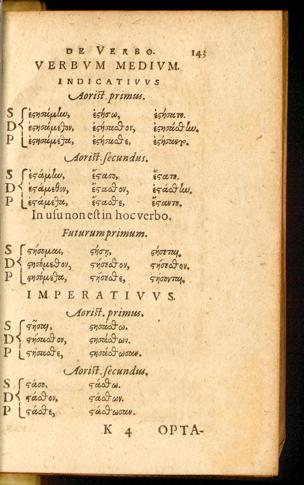 DE VERBO. 143
VERBVM MEDIVM.
INDICATIVVS
Aorist. primus.
S ἐστησάμην, ἐστήσω, ἐστήσατο.
D ἐστησάμεθον, ἐστήσασθον, ἐστησάσθην.
P ἐστησάμεθα, ἐστήσασθε, ἐστήσαντο.
Aorist. secundus.
S ἐστάμην, ἔστασο, ἔστατο.
D ἐστάμεθον, ἔστασθον, ἐστάσθην.
P ἐστάμεθα, ἔστασθε, ἔσταντο.
In usu non est in hoc verbo.
Futurum primum.
S στήσομαι, στήσῃ, στήσεται.
D στησόμεθον, στήσεσθον, στήσεσθον.
P στησόμεθα, στήσεσθε, στήσονται.
IMPERATIVVS.
Aorist. primus.
S στῆσαι, στησάσθω.
D στήσασθον, στησάσθων.
P στήσασθε, στησάσθωσαν.
Aorist. secundus.
S στάσο, στάσθω.
D στάσθον, στάσθων.
P στάσθε, στάσθωσαν.
K 4 OPTA-